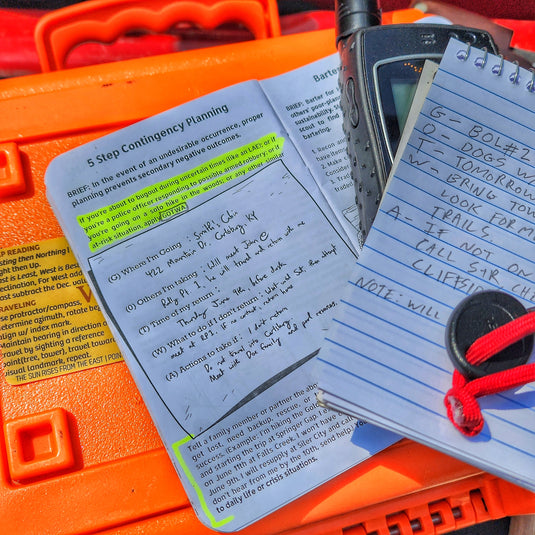 5 Step Contingency Planning
BRIEF: In the event of an undesirable occurrence, proper
planning prevents secondary negative outcomes.
If you're about to bugout during uncertain times like an LAE; or if
you're a police officer responding to possible armed robbery; or if
you're going on a solo hike in the woods, or any other similar
at-risk situation, apply GOTWA
(G) Where I'm Going: Smith's Cabin
422 Mountain D, Carlsbug, KY
(O) Others I'm taking: Will meet John C
Rally Pt 1, he will travel out return with me
(T) Time of my return:
Thursday June 9th, before dark
(W) What to do if I don't return: Wait until Sat. then attempt
meet at RP2. If no contact, return home
(A) Actions to take if: I don't return
Do not travel into Carlsbug,
Meet with Doe Family and
Tell a family member or partner the abo
get lost, need backup, rescue, or
success. (Example: I'm hiking the
and starting the trip at Springer Gap.
on June 11th at Falls Creek. I won't have c
June 9th, I will resupply at Siler City and cal
don't hear from me by the 10th, send help.) Yo
to daily life or crisis situations.
Bar
BRIEF: Barter for
others' poor-plann
sustainability.
scout to find
bartering.
1. Recon
2. Make
3. Co
4. Tra
EP READING
sting then Northing
ght then Up.
est is Least, West is Bes
eclination. For West add
ast subtract the Dec. val
AVELING
se protractor/compass,
etermine azimuth, rotate be
lign w/ index mark.
aintain bearing in direction
avel by sighting a reference
point(tree, tower), travel towards
isual landmark, repeat.
THE SUN RISES FROM THE EAST I POIN
G - BOL#2
O - DOGS W
T - TOMORROW
W - BRING TOW
LOOK FOR M
TRAILS
A - IF NOT ON
CALL S+R CH
CLIFFSID
NOTE: WILL